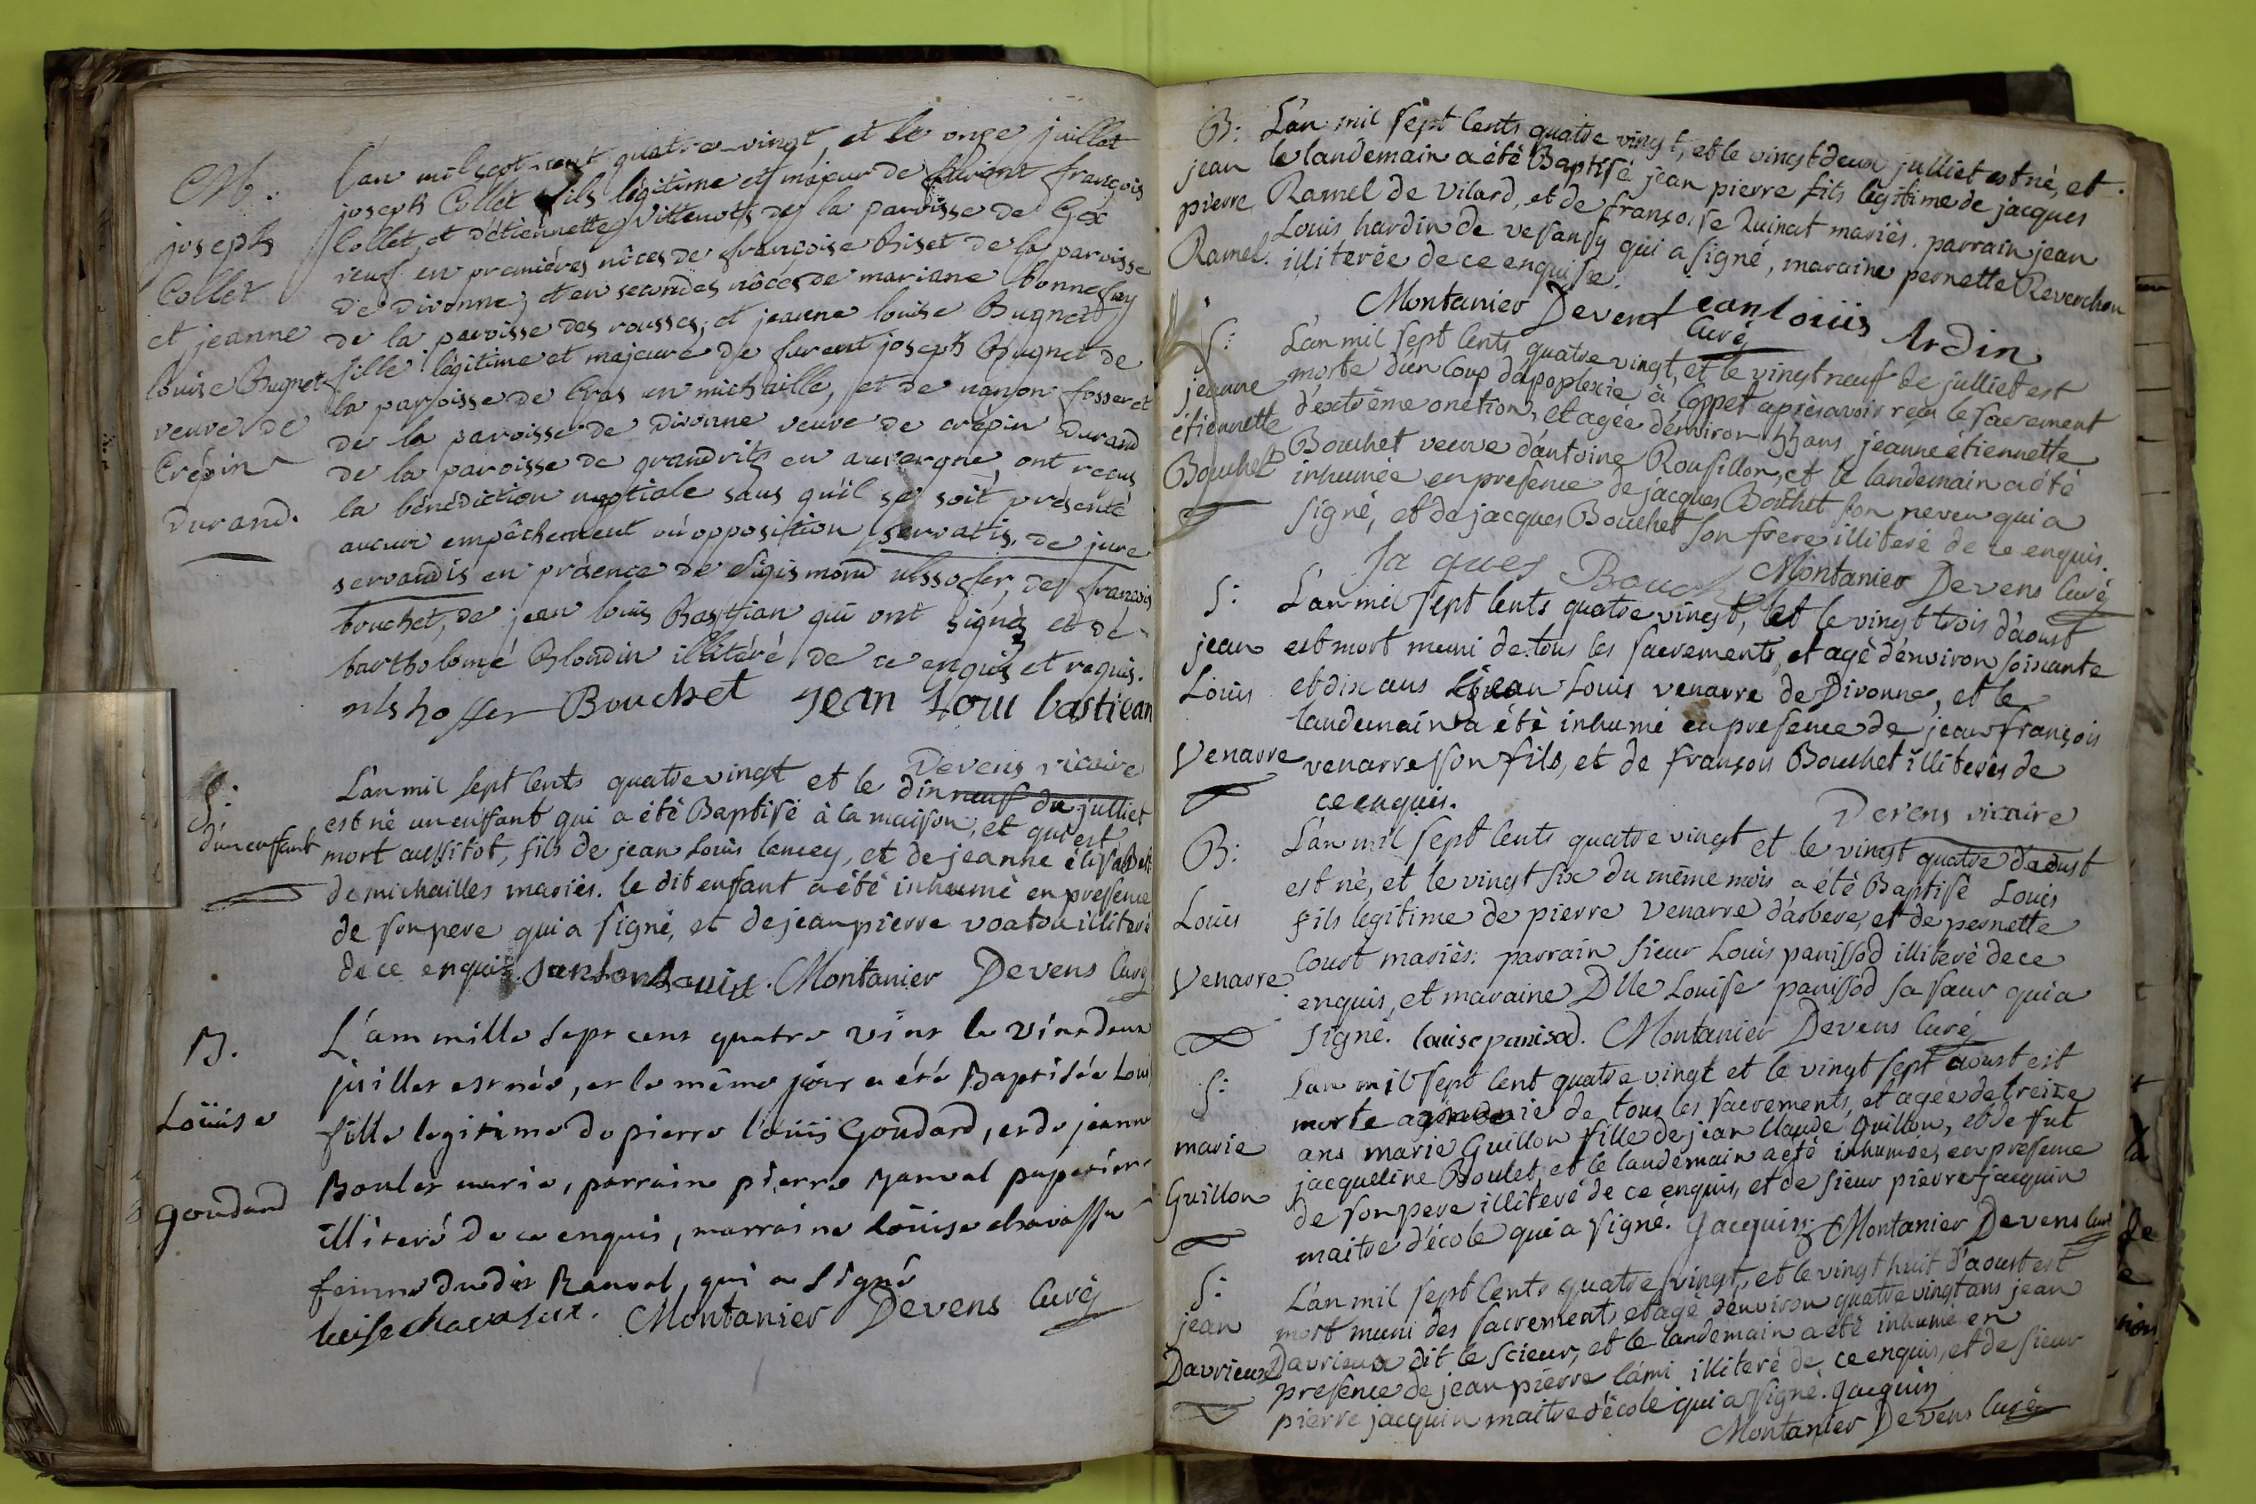 M:
joseph
Collet
et jeanne
louise Bugnet
veuve de
Crépin
Durand.
L'an mil sept cent quatre-vingt, et le onze juillet
joseph Collet fils légitime et majeur de françois
Collet, et d'étiennette Vittenets de la paroisse de Gex
veuf en premières nôces de françoise Biset de la paroisse
de divonne, et en secondes nôces de mariane bonnefay
de la paroisse des rousses; et jeanne louise Bugnet
fille légitime et majeure de furent joseph Bugnet de
la paroisse de Cras en michaille, et de nanon fosseret
de la paroisse de divonne veuve de crépin Durand
de la paroisse de grandrits en auvergne, ont reçus
la bénédiction nuptiale sans qu'il se soit présenté
aucun empêchement ou opposition, servatis de jure
servandis en présence de Sigismond ulssofer, de françois
bouchet, de jean louis Bastian qui ont signés et de
bartholomé Blondin illitéré de ce enquis et requis.
ulshoffer Bouchet jean Loui bastiean
Devens vicaire
S:
d'un enfant
L'an mil sept cents quatre vingt et le dixneuf du julliet
est nè un enfant qui a été Baptisé à la maison, et qui est
mort aussitot, fils de jean Louis lancey, et de jeanne elisabeth
de michailles mariés. le dit enfant a été inhumé en presence
de son pere qui a signé, et de jean pierre voatou illiteré
de ce enquis. Montanier Devens Curé
B.
Loüise
Goudard
L'an mille sept cent quatre vint le vint deux
juillet est née, et le même jour a été Baptisée Loui
fille legitime de pierre loüis Goudard, et de jeanne
Boulet marié, parrain pierre Ranval papetier
illiteré de ce enquis, marraine loüise chavasse
femme dudit Ranval, qui a signé
Montanier Devens Curé
B:
jean
pierre
Ramel.
L'an mil sept cents quatre vingt, et le vingt deux julliet est né, et
le landemain a été Baptisé jean pierre fils legitime de jacques
Ramel de vilard, et de françoise Quinat mariés. parrain jean
Louis hardin de vesansy qui a signé, maraine pernette Reverchon
illiterée de ce enquise.
Montanier Devens Curé jean loüis Ardin
S:
jeanne
étiennette
Bouchet
L'an mil sept cents quatre vingt, et le vingt neuf de julliet est
morte d'un coup d'apoplexie à Coppet apres avoir reçu le sacrement
d'extrême onction, et agée d'environ 55 ans jeanne étiennette
Bouchet veuve d'antoine Rousillon, et le landemain a été
inhumée en presence de jacques Bouchet son neveu qui a
signé, et de jacques Bouchet son frere illiteré de ce enquis.
Jaques Bouchet Montanier Devens Curé
S:
jean
Louis
Venarre
L'an mil sept cents quatre vingt, et le vingt trois d'aoust
est mort muni de tous les sacrements, et agé d'environ soixante
et dix ans jean Louis venarre de Divonne, et le
landemain a été inhumé en presence de jean françois
venarre son fils, et de françois Bouchet illiterés de
ce enquis.
Devens vicaire
B:
Louis
Venarre
L'an mil sept cents quatre vingt et le vingt quatre d'aoust
est né, et le vingt six du même mois a été Baptisé Louis
fils legitime de pierre Venarre d'arbere, et de pernette
Court mariés: parrain sieur Louis panissod illiteré de ce
enquis, et maraine Dlle Louise panissod sa sœur qui a
signé. louise panisod. Montanier Devens Curé
S:
marie
Guillon
L'an mil sept cent quatre vingt et le vingt sept aoust est
morte munie de tous les sacrements, et agée de treize
ans marie Guillon fille de jean claude Guillon, et de fut
jacqueline Boulet et le landemain a été inhumée, en presence
de son pere illiteré de ce enquis, et de sieur pierre jacquin
maitre d'école qui a signé. Jacquin Montanier Devens Curé
S:
jean
Davrieux
L'an mil sept cents quatre vingt, et le vingt huit d'aoust est
mort muni des sacrements et agé d'environ quatre vingt ans jean
Davrieux dit le Scieur, et le landemain a été inhumé en
presence de jean pierre lami illiteré de ce enquis, et de sieur
pierre jacquin maitre d'école qui a signé. Jacquin
Montanier Devens Curé